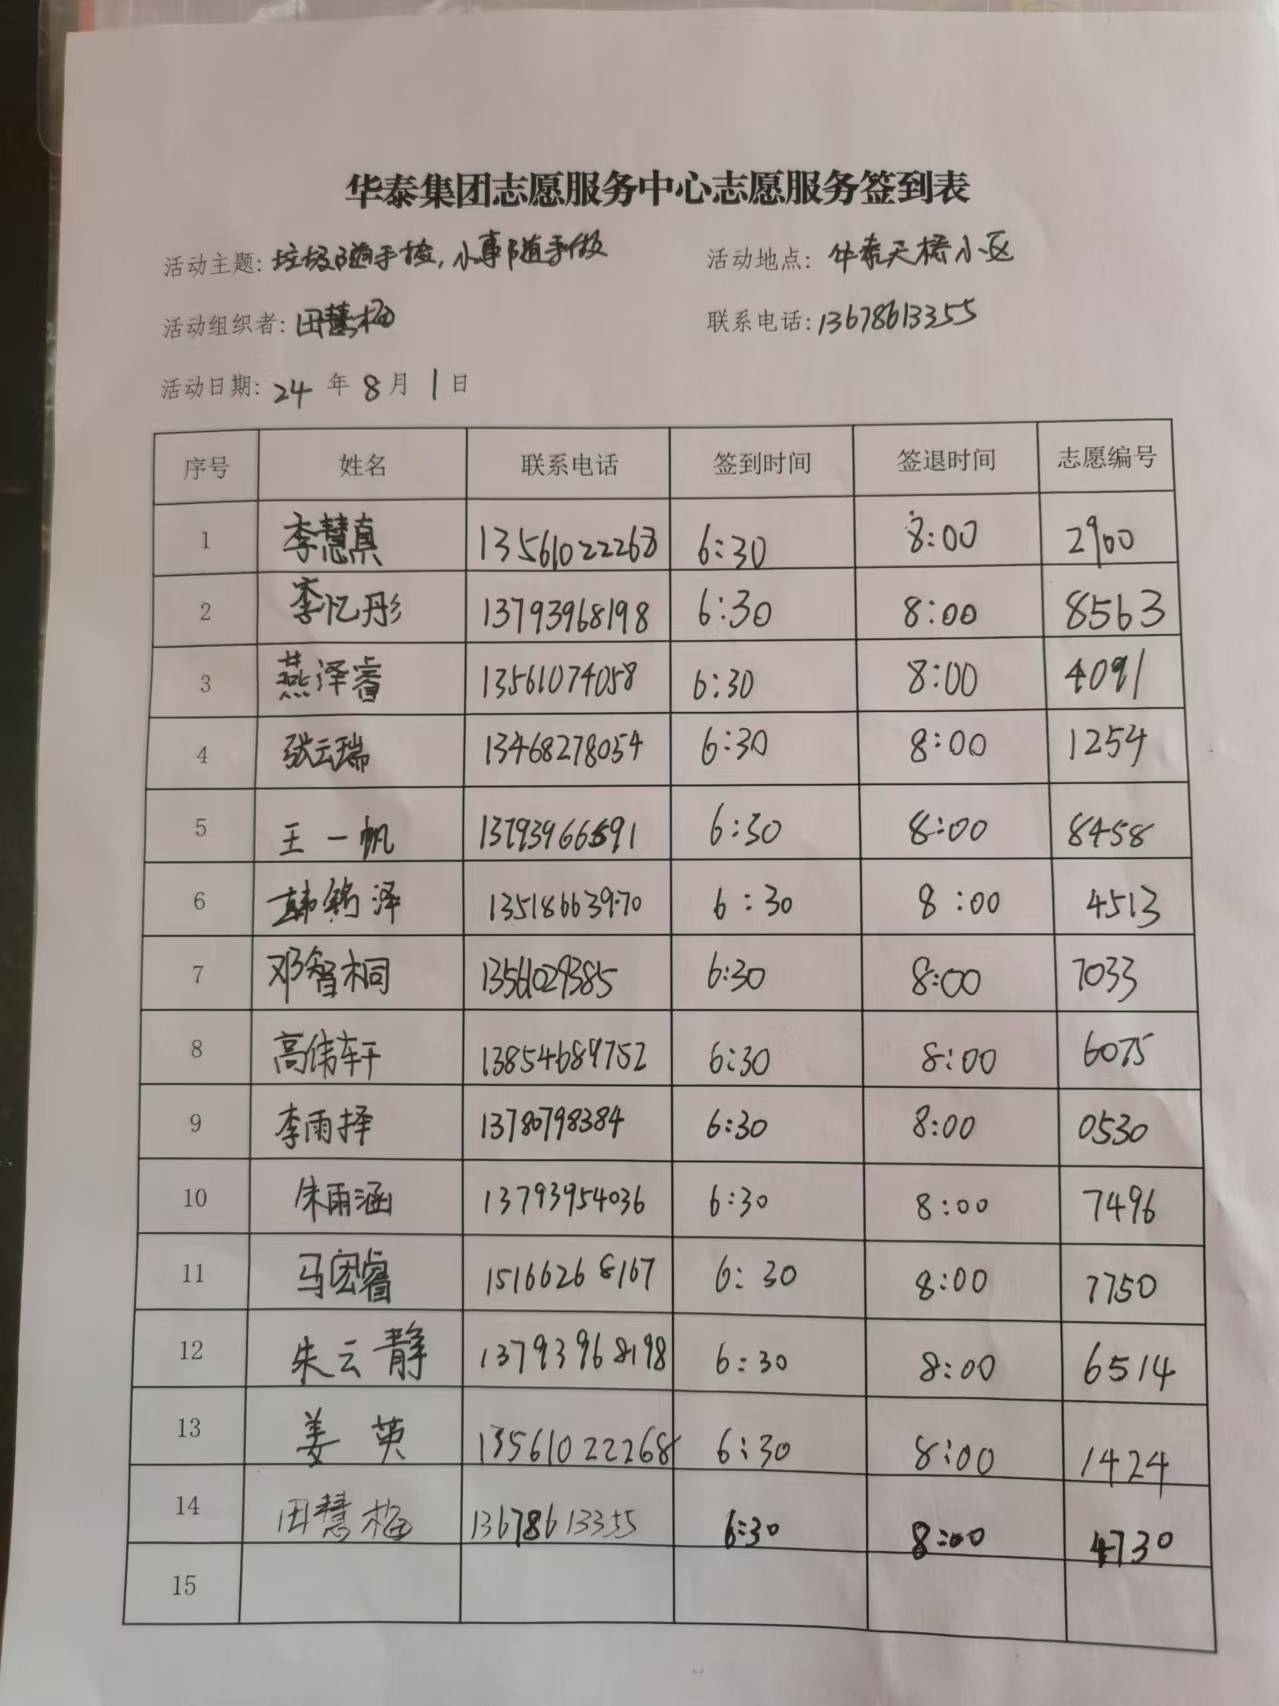 华泰集团志愿服务中心志愿服务签到表
活动主题: 垃圾随手捡, 小事随手做 活动地点: 华泰天桥小区
活动组织者: 田慧梅 联系电话: 13678613355
活动日期: 24 年 8 月 1 日
序号 姓名 联系电话 签到时间 签退时间 志愿编号
1 李慧真 13561022268 6:30 8:00 2900
2 李忆彤 13793968198 6:30 8:00 8563
3 燕泽睿 13561074058 6:30 8:00 4091
4 张云瑞 13468278054 6:30 8:00 1254
5 王一帆 13793966591 6:30 8:00 8458
6 韩钧泽 13518663970 6:30 8:00 4513
7 邓智桐 13561029385 6:30 8:00 7033
8 高伟轩 13854684752 6:30 8:00 6075
9 李雨择 13780798384 6:30 8:00 0530
10 朱雨涵 13793954036 6:30 8:00 7496
11 马宏睿 15166268167 6:30 8:00 7750
12 朱云静 13793968198 6:30 8:00 6514
13 姜英 13561022268 6:30 8:00 1424
14 田慧梅 13678613355 6:30 8:00 4730
15